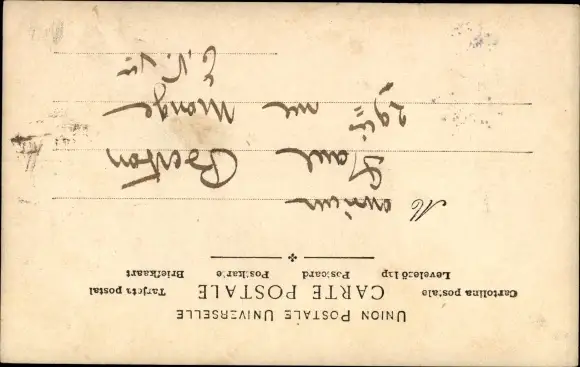 UNION POSTALE UNIVERSELLE
Cartolina postale CARTE POSTALE Tarjeta postal
Levelező lap Postcard Postkarte Briefkaart
Monsieur
Paul
rue Monge
E.V.